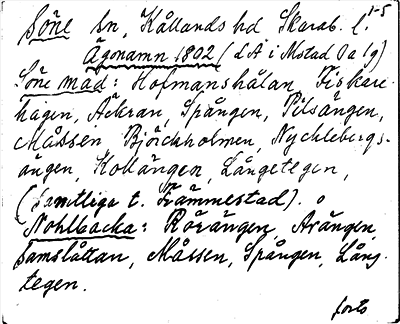 Söne sn, Kållands hd Skarab. l. 1-5
Ägonamn 1802 (LA i Mstad Da 19)
Söne mad: Hofmanshålan, Fiskare-
hagen, Åckran, Spången, Pilsängen,
Måssen, Björckholmen, Nycklebergs-
ängen, Kollängen, Långetegen,
(samtliga t. Främmestad).
Nohlbacka: Rörängen, Arängen,
Tamslåttan, Måssen, Spången, Lång-
tegen.
forts